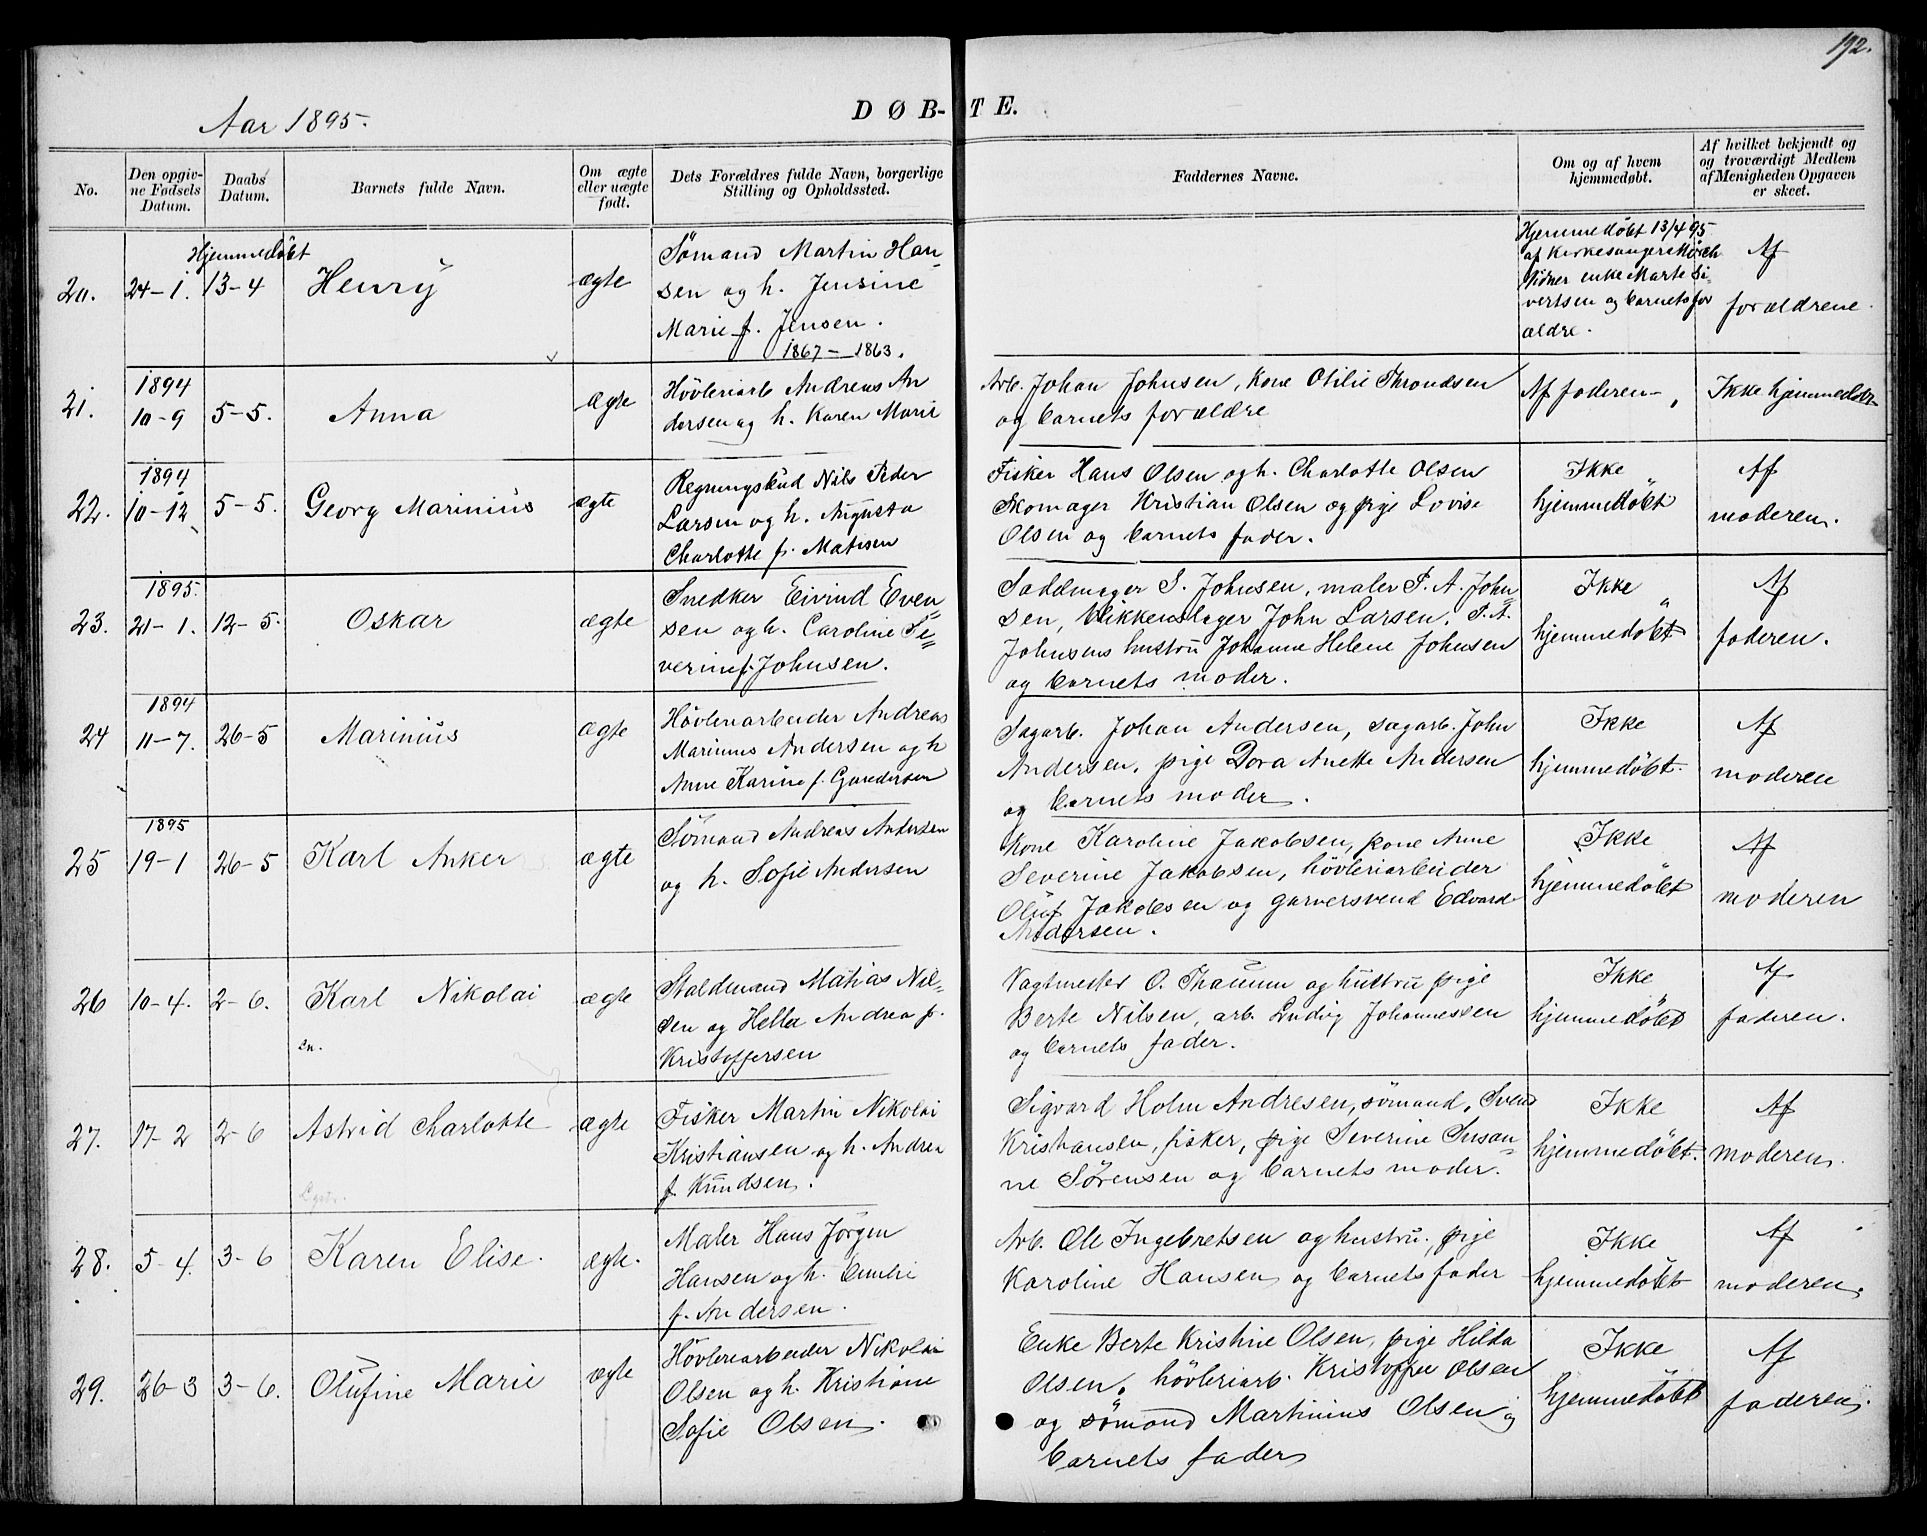 192.
Aar 1895.
DØB-TE.
No.
Den opgiv-
ne Fødsels
Datum.
Daabs
Datum.
Barnets fulde Navn.
Om ægte
eller uægte
født.
Dets Forældres fulde Navn, borgerlige
Stilling og Opholdssted.
Faddernes Navne.
Om og af hvem
hjemmedøbt.
Af hvilket bekjendt og
og troværdigt Medlem
af Menigheden Opgaven
er skeet.
20.
24-1.
Hjemmedøbt
13-4
Henry
ægte
Sømand Martin Han-
sen og h. Jensine
Marie f. Jensen.
1867 - 1863.
Hjemmedøbt 13/4 95
af Kirkesanger
enke Marte Si-
vertsen og barnets for
ældre.
Af
forældrene
21.
1894
10-9
5-5.
Anna
ægte
Høvleriarb Andreas An
dersen og h. Karen Marie
Arb. Johan Johnsen, Kone Otilie Throndsen
og barnets forældre
Af faderen
Ikke hjemmedøbt
22.
1894
10-12
5-5.
Georg Marinius
ægte
Regningsbud Nils Peder
Larsen og h. Augusta
Charlotte f. Matisen
Fisker Hans Olsen og h. Charlotte Olsen
Skomager Kristian Olsen og pige Lovise
Olsen og barnets fader.
Ikke
hjemmedøbt
Af
moderen.
23.
1895.
21-1.
12-5.
Oskar
ægte
Snedker Eivind Even=
sen og h. Caroline Se=
verine f. Johnsen.
Saddmager S. Johnsen, maler P. A. John=
sen, Blikkenslager John Larsen, P. A.
Johnsens hustru Johanne Helene Johnsen
og barnets moder.
Ikke
hjemmedøbt
Af
faderen.
24
1894
11-7.
26-5
Marinius
ægte
Høvleriarbeider Andreas
Marinius Andersen og h
Anne Karine f. Gundersen
Sagarb. Johan Andersen, sagarb. John
Andersen, pige Dora Anette Andersen
og barnets moder.
Ikke
hjemmedøbt.
Af
moderen
25
1895
19-1
26-5
Karl Anker
ægte
Sømand Andreas Andersen
og h. Sofie Andersen
Kone Karoline Jakobsen, kone Anne
Severine Jakobsen, høvleriarbeider
Oluf Jakobsen og garversvend Edvard
Andersen.
Ikke
hjemmedøbt
Af
moderen
26
10-4.
2-6.
Karl Nikolai
ægte
Staldmand Matias Nil-
sen og Hella Andrea f.
Kristoffersen
Vagtmester O. Thaumm og hustru pige
Berte Nilsen, arb. Ludvig Johannessen
og barnets fader.
Ikke
hjemmedøbt
Af
faderen.
27.
17-2
2-6
Astrid Charlotte
ægte
Fisker Martin Nikolai
Kristiansen og h. Andrea
f. Knudsen.
Sigvard Holm Andresen, sømand, Sven
Kristiansen, fisker, pige Severine Susan=
ne Sørensen og barnets moder.
Ikke
hjemmedøbt.
Af
moderen.
28.
5-4.
3-6
Karen Elise.
ægte.
Maler Hans Jørgen
Hansen og h. Emilie
f. Andersen.
Arb. Ole Ingebretsen og hustru, pige
Karoline Hansen og barnets fader
Ikke
hjemmedøbt
Af
moderen.
29.
26-3
3-6.
Olufine Marie
ægte
Høvleriarbeider Nikolai
Olsen og h. Kristiane
Sofie Olsen.
Enke Berte Kristine Olsen, pige Hilda
Olsen, høvleriarb. Kristoffer Olsen
og sømand Martinius Olsen og
barnets fader
Ikke
hjemmedøbt
Af
faderen.